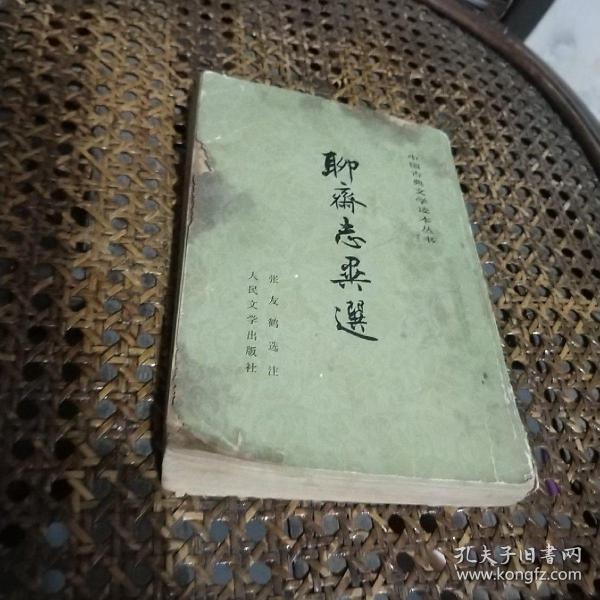 中国古典文学读本丛书
聊齋志異選
张友鹤选注
人民文学出版社
孔夫子旧書网
www.kongfz.com